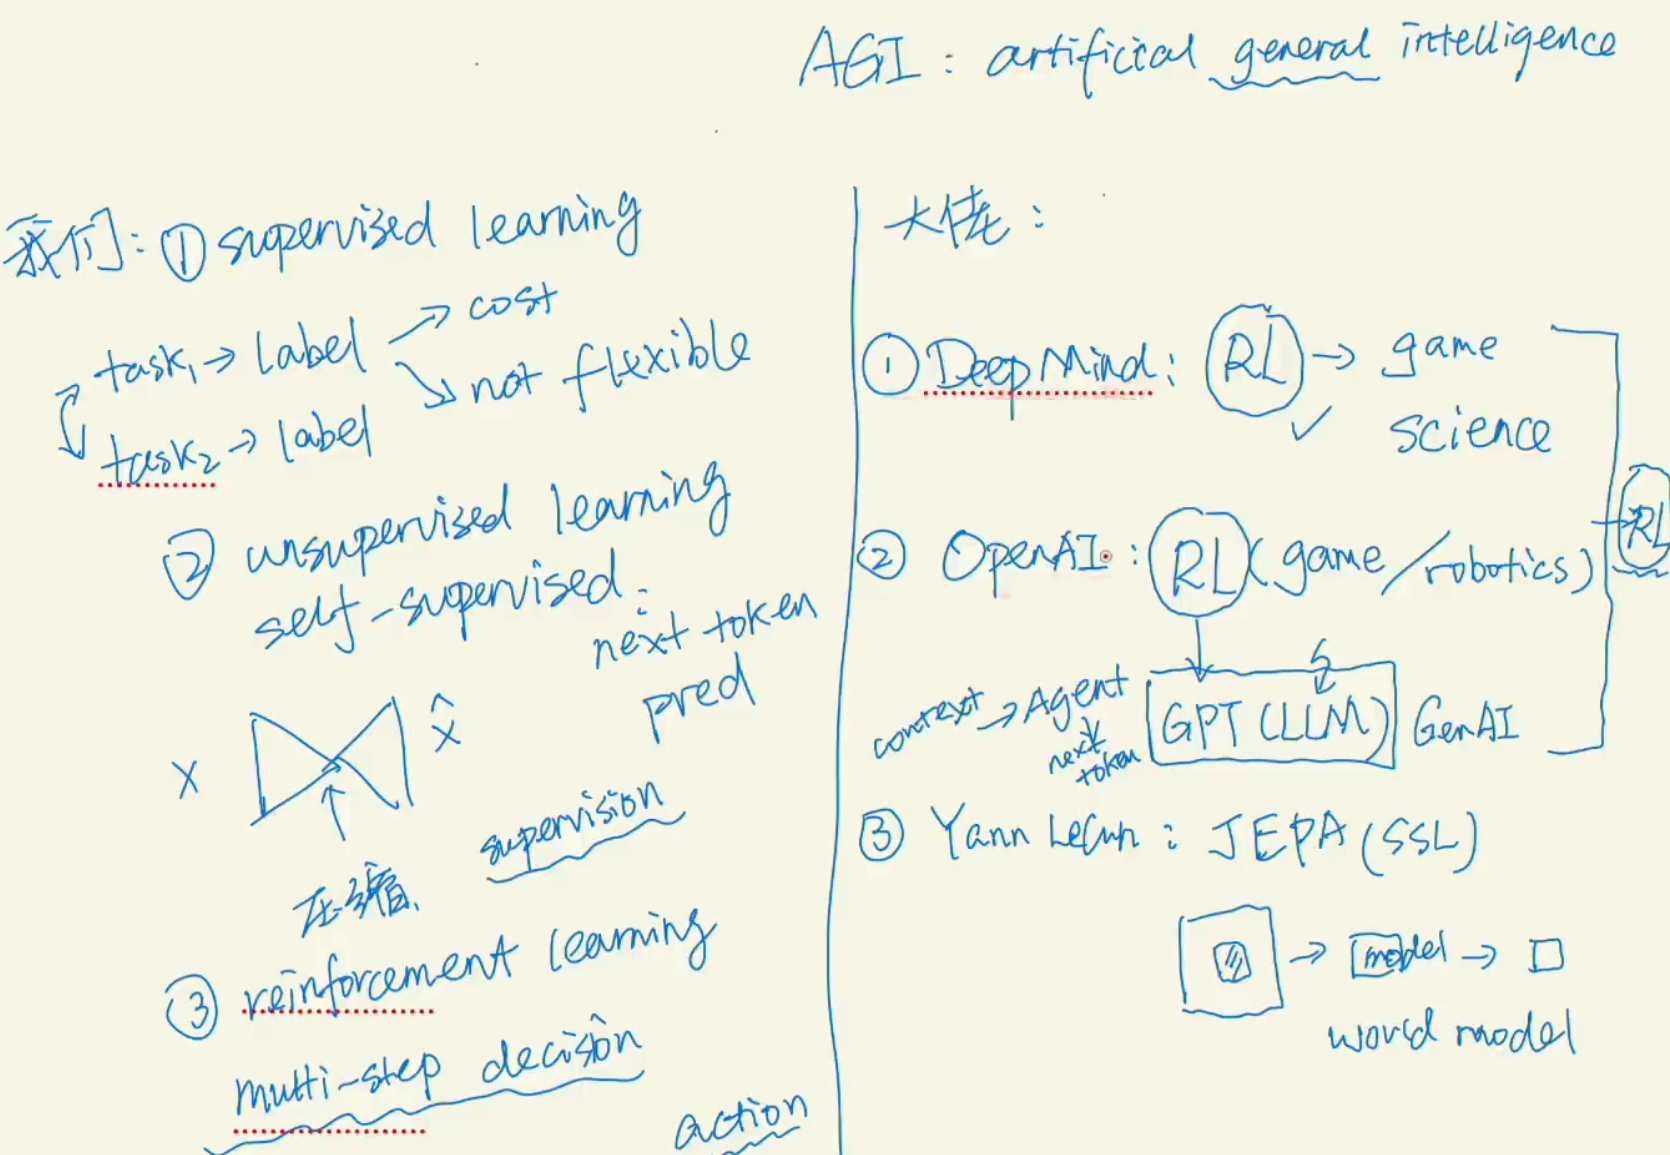 AGI : artificial general intelligence
我们: ① supervised learning
task1 → label → cost
→ not flexible
task2 → label
② unsupervised learning
self-supervised :
next token
pred
X
X̂
压缩
supervision
③ reinforcement learning
multi-step decision
action
大佬 :
① DeepMind : RL → game
science
② OpenAI : RL (game/robotics)
RL
context → Agent
next
token
GPT (LLM)
GenAI
③ Yann LeCun : JEPA (SSL)
→ model →
world model